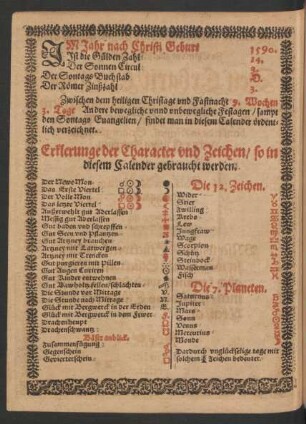 IM Jahr nach Christi Geburt 1590.
Ist die Gülden Zahl 14.
Der Sonnen Circul 3.
Der Sontags Buchstab D.
Der Römer Zinßzahl 3.
Zwischen dem heiligen Christtage vnd Fastnacht 9. Wochen
5. Tage Andere bewegliche vnnd vnbewegliche Festagen / sampt
den Sontags Euangelien / findet man in diesem Calender ordent-
lich verzeichnet.
Erklerunge der Character vnd Zeichen / so in
diesem Calender gebraucht werden.
Der Newe Mon
Das Erste Viertel
Der Volle Mon
Das letzte Viertel
Außerwehlt gut Aderlassen
Messig gut Aderlassen
Gut baden vnd schrepffen
Gut Seen vnd pflantzen
Gut Artzney brauchen
Artzney mit Latwergen
Artzney mit Trencken
Gut purgieren mit Pillen
Gut Augen Curiren
Gut Kinder entwehnen
Die Stunde vor Mittage
Die Stunde nach Mittage
Glück mit Bergwerck in der Erden
Glück mit Bergwerck in dem Fewer
Drachenhaupt
Drachenschwantz
Zusammenfügung
Gegenschein
Gevierterschein
Die 12. Zeichen.
Wider
Stier
Zwilling
Krebs
Lew
Jungfraw
Wage
Scorpion
Schütz
Steinbock
Wasserman
Fisch
Die 7. Planeten.
Saturnus
Jupiter
Mars
Sonn
Venus
Mercurius
Monde
Dardurch vnglückselige tage mit
solchem Zeichen bedeutet.